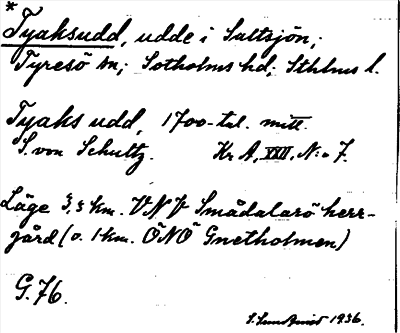 * Tyaksudd, udde i Saltsjön,;
Tyresö sn; Sotholms hd; Sthlms l.
Tyaks udd, 1700-tal. mitt.
S. von Schultz. Kr A, XXII, N:o 7.
Läge 3,5 km. VNV Smådalarö herr-
gård (o. 1 km. ÖNÖ Gnetholmen)
G. 76.
S. Sundqvist 1936.